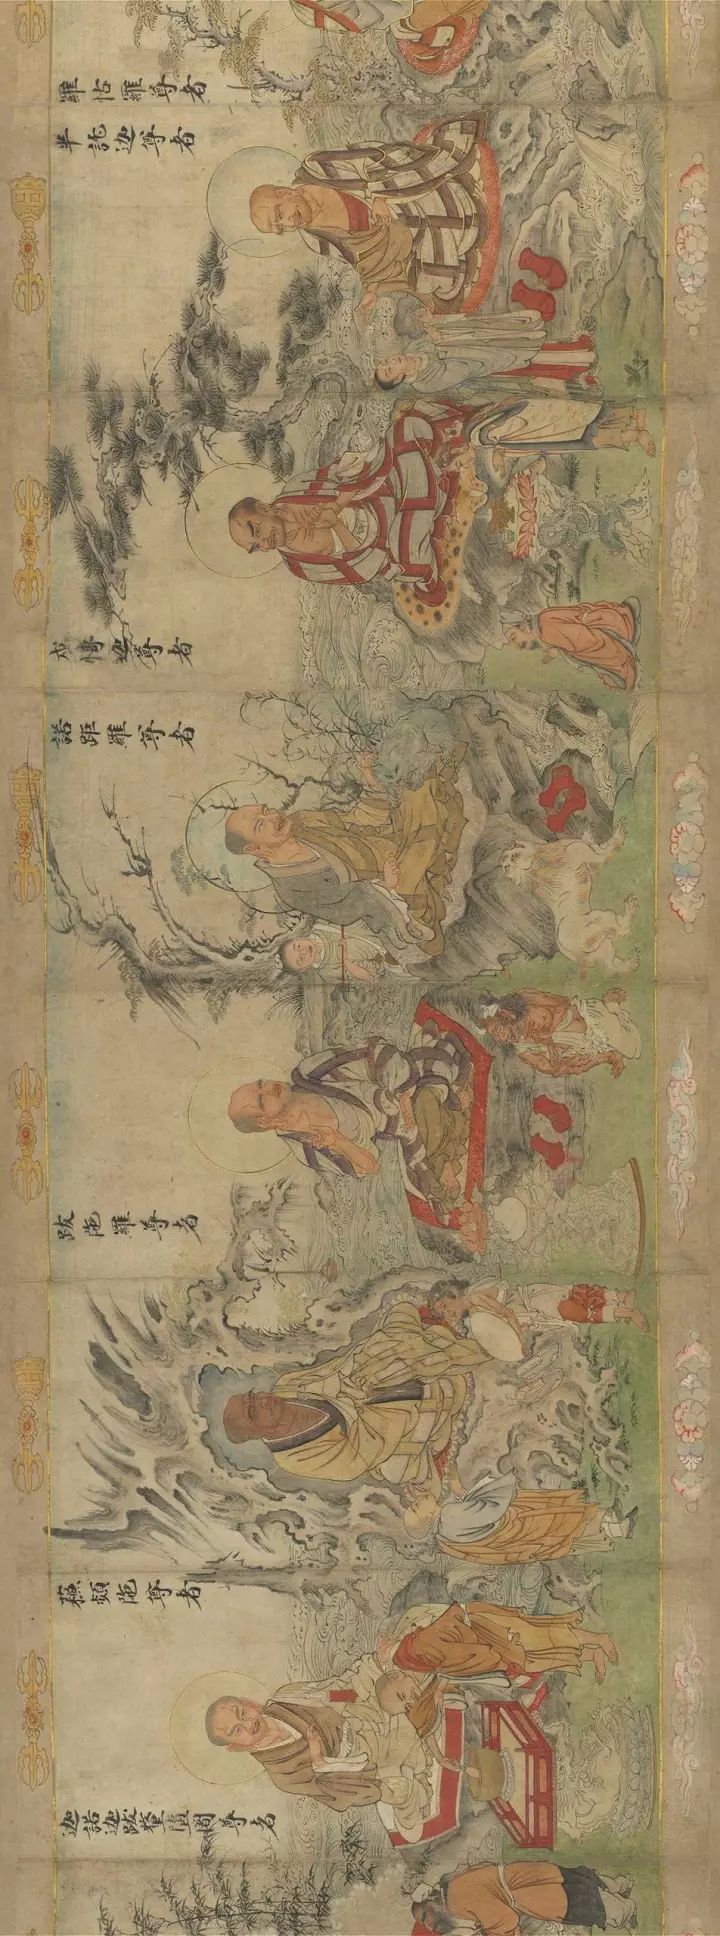 羅怙羅尊者
半託迦尊者
戍愽迦尊者
諾距羅尊者
跋陁羅尊者
蘇頻陁尊者
迦諾迦跋釐墮闍尊者